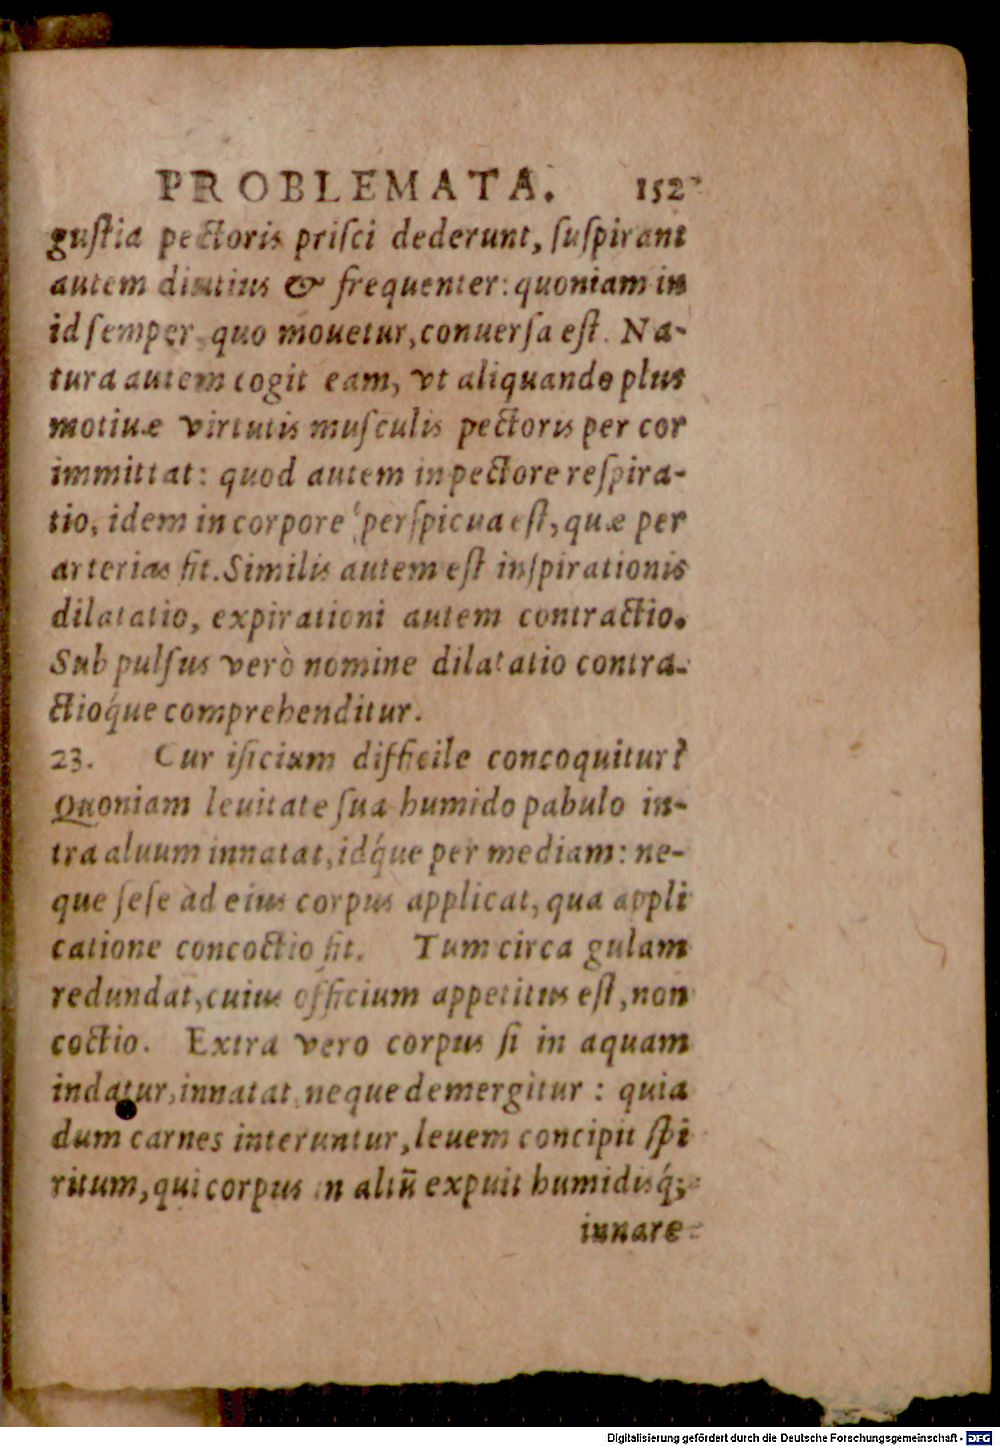 PROBLEMATA. 152
guſtia pectoris priſci dederunt, ſuſpirant
autem diutius & frequenter: quoniam in
id ſemper quo mouetur, conuerſa eſt. Na-
tura autem cogit eam, vt aliquando plus
motiuæ virtutis muſculis pectoris per cor
immittat: quod autem in pectore reſpira-
tio, idem in corpore perſpicua eſt, quæ per
arterias fit. Similis autem eſt inſpirationis
dilatatio, expirationi autem contractio.
Sub pulſus verò nomine dilatatio contra-
ctioq́ue comprehenditur.
23. Cur iſicium difficile concoquitur?
Quoniam leuitate ſua humido pabulo in-
tra aluum innatat, idq́ue per mediam: ne-
que ſeſe ad eius corpus applicat, qua appli
catione concoctio fit. Tum circa gulam
redundat, cuius officium appetitus eſt, non
coctio. Extra vero corpus ſi in aquam
indatur, innatat neque demergitur: quia
dum carnes interuntur, leuem concipit ſpi
ritum, qui corpus in altũ expuit humidisq́;
innare
Digitalisierung gefördert durch die Deutsche Forschungsgemeinschaft - DFG